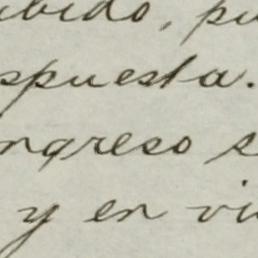 ibido, pu
spuesta.
ngreso s
y en vi